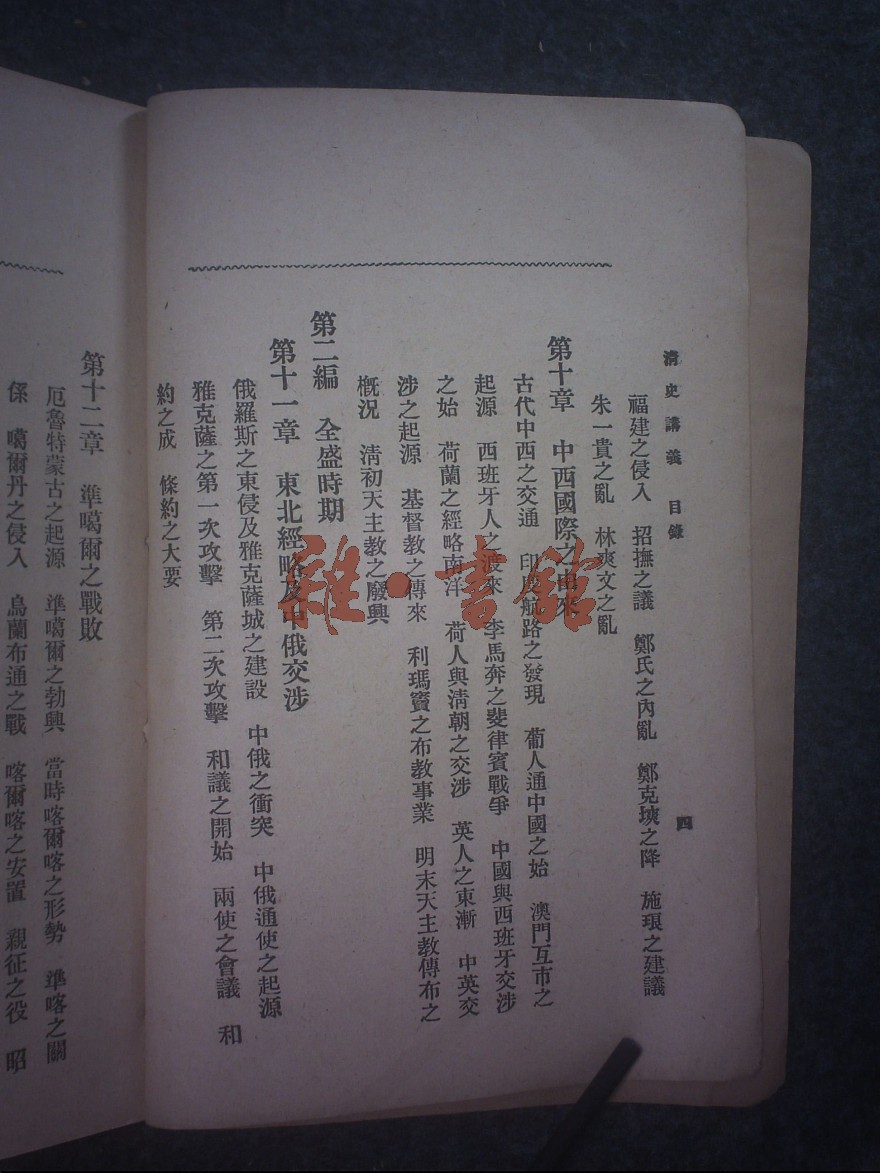 清史講義 目錄 四
福建之侵入 招撫之議 鄭氏之內亂 鄭克塽之降 施琅之建議
朱一貴之亂 林爽文之亂
第十章 中西國際之由來
古代中西之交通 印度航路之發現 葡人通中國之始 澳門互市之
起源 西班牙人之渡來 李馬奔之斐律賓戰爭 中國與西班牙交涉
之始 荷蘭之經略南洋 荷人與淸朝之交涉 英人之東漸 中英交
涉之起源 基督教之傳來 利瑪竇之布教事業 明末天主教傳布之
槪況 淸初天主教之廢興
第二編 全盛時期
第十一章 東北經略及中俄交涉
俄羅斯之東侵及雅克薩城之建設 中俄之衝突 中俄通使之起源
雅克薩之第一次攻擊 第二次攻擊 和議之開始 兩使之會議 和
約之成 條約之大要
第十二章 準噶爾之戰敗
厄魯特蒙古之起源 準噶爾之勃興 當時喀爾喀之形勢 準喀之關
係 噶爾丹之侵入 烏蘭布通之戰 喀爾喀之安置 親征之役 昭
雜·書館